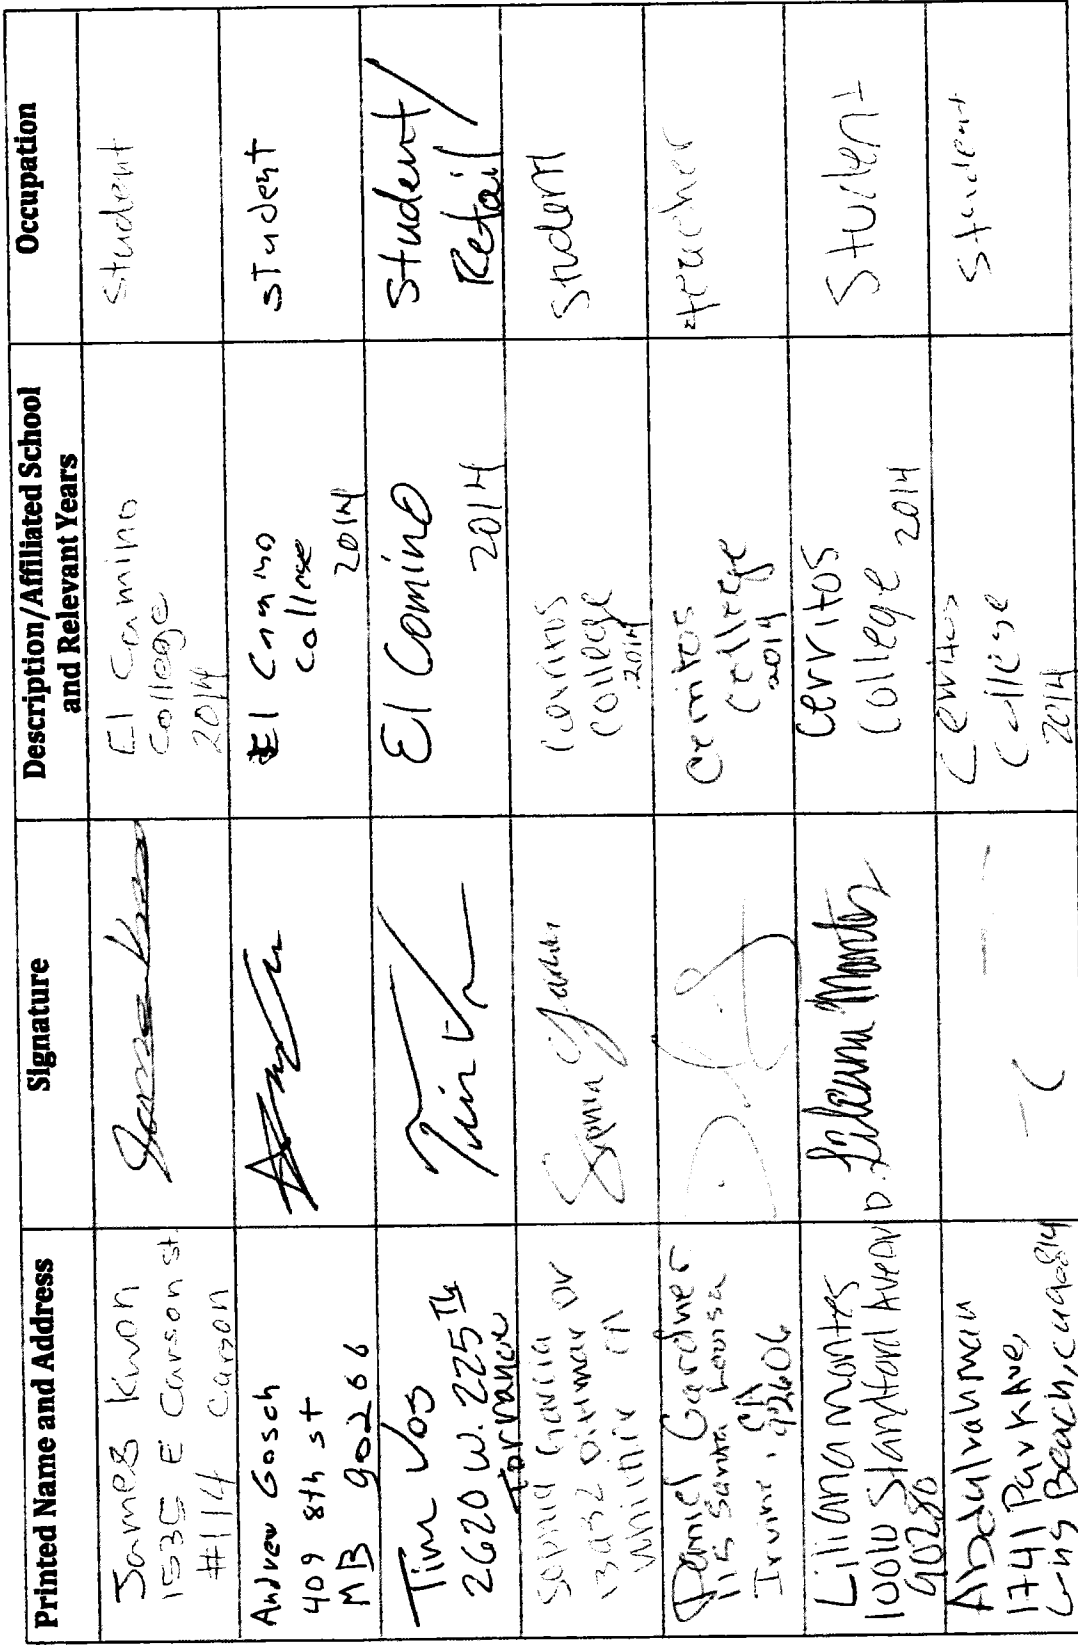 Printed Name and Address
Signature
Description/Affiliated School
and Relevant Years
Occupation
James Kwon
1535 E Carson st.
#114 Carson
El Camino
College
2014
Student
Andrew Gosch
409 8th st
MB 90266
El Camino
College
2014
student
Tim Vos
2620 W. 225th
Torrance
El Camino
2014
Student/
Retail
Sophia Gaviria
Dr
Whittier CA
Cerritos
College
2014
Student
Daniel Gardner
115 Santa Louisa
Irvine, CA
92606
Cerritos
College
2014
teacher
Liliana Montes
10010 Standford Ave
90280
Liliana Montes
Cerritos
College 2014
Student
Abedulrahman
1741 Park Ave,
Long Beach, ca 90814
Cerritos
College
2014
Student